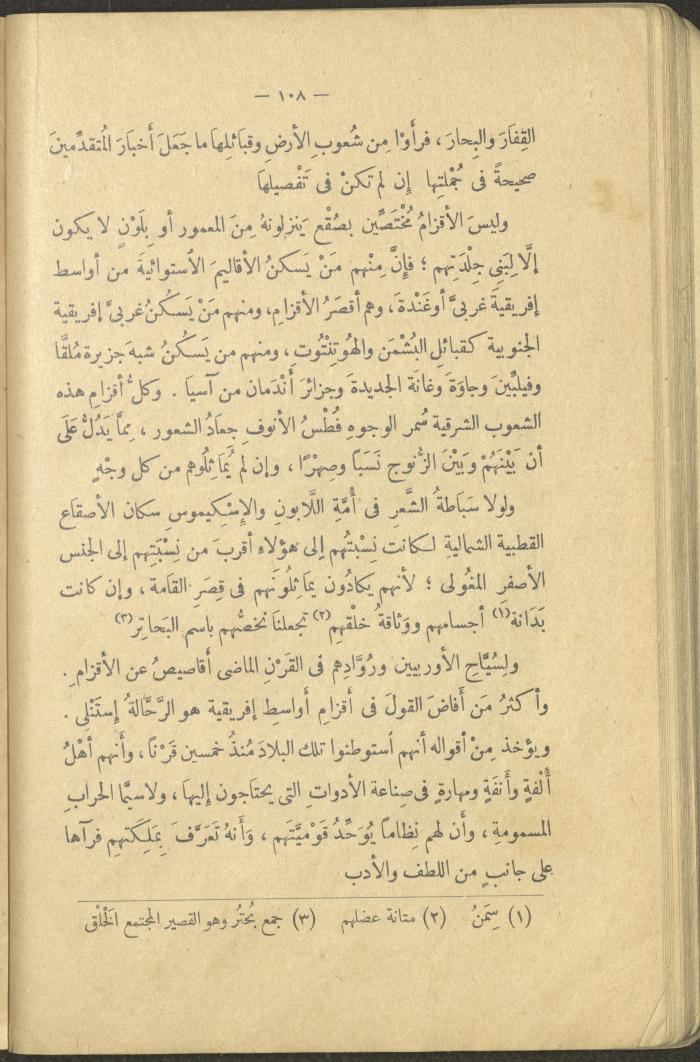 — ١٠٨ —
القِفَارَ والبِحارَ ، فرأَوْا مِن شُعوبِ الأرضِ وقبَائلِهَا ما جَعَلَ أَخبَارَ المُتقدِّمينَ
صحيحةً فى جُمْلتِها إِن لم تكنْ فى تَفْصيلهَا
وليسَ الأقزامُ مُخْتَصِّين بصُقْع يَنزلونهُ مِنَ المعمور أو بِلَوْنٍ لا يكون
إلَّا لِبَنِى جِلْدَتِهم ؛ فإِنَّ مِنْهم مَنْ يَسكنُ الأقاليمَ الأستوائيةَ من أواسط
إفريقيةَ غربىَّ أوغَنْدةَ ، وهم أقصَرُ الأقزامِ، ومنهم مَنْ يَسكنُ غربىَّ إفريقية
الجنوبية كقبائلِ البُشْمَن والهُوتِنْتُوتِ ، ومنهم من يَسكنُ شبهَ جزيرة مُلقَّا
وفيلبِّينَ وجاوَةَ وغانَة الجديدةَ وجزائرَ أَنْدَمان من آسيَا . وكلُّ أقزامِ هذه
الشعوب الشرقية سُمر الوجوهِ فُطْسُ الأنوفِ جعَادُ الشعور ، مِمَّا يَدُلُّ عَلَى
أن بَيْنَهُمْ وَبَيْنَ الزُّنوج نَسَباً وصِهْرًا ، وإن لم يُمَاثِلُوهم من كل وجْهٍ
ولولا سَبَاطةُ الشَّعرِ فى أُمَّةِ اللَّابونِ والإِسْكيموسِ سكان الأصقاع
القطبية الشمالية لكانت نِسْبتُهم إلى هؤلاءِ أقربَ من نِسْبَتِهم إلى الجنس
الأصفر المغُولى ؛ لأنهم يكادُون يمَاثلُونَهم فى قِصَرِ القَامة ، وإن كانت
بَدَانة(١) أجسامهم ووَثاقةُ خلْقهِم(٢) تجعلنَا نخصُّهم باسم البَحاتِر(٣)
ولِسُيَّاحِ الأوربيين ورُوَّادِهم فى القَرْنِ الماضى أَقاصيصُ عن الأقزامِ .
وأكثرُ مَن أَفاضَ القولَ فى أَقزامِ أَواسطِ إفريقية هو الرَّحَّالةُ إِستَنْلِى .
ويؤخذ مِنْ أقواله أنهم ٱستوطنوا تلك البلادَ مُنذُ خمسين قَرْناً ، وأَنهم أَهْلُ
أُلْفةٍ وأَنفَةٍ ومهارةٍ فى صِناعة الأدواتِ التى يحتَاجون إليهَا ، ولاسيَّما الحراب
المسمومةِ ، وأَن لهم نِظاماً يُوَحِّدُ قَوْميَّتَهم ، وَأَنهُ تَعَرَّفَ بِمَلِكَتهِم فرآها
على جانبٍ من اللطف والأدب
(١) سِمَنُ (٢) متانة عضلهم (٣) جمع بُحتُر وهو القصير المجتمع الخَلْق